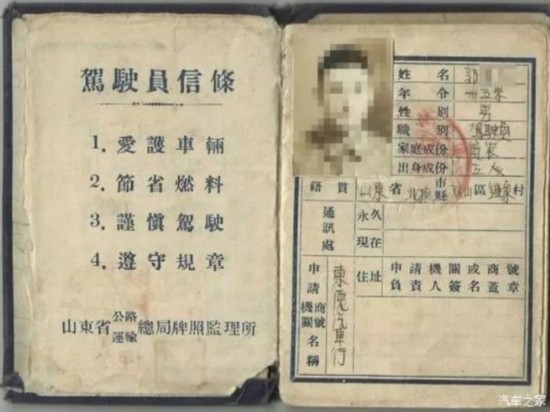 駕駛員信條
1. 愛護車輛
2. 節省燃料
3. 謹慎駕駛
4. 遵守規章
山東省公路運輸總局牌照監理所
姓名 郭
年令 卅五岁
性别 男
職别 駕駛員
家庭成份
出身成份
籍貫 山東省 市縣 區 村
通訊處 永久
現在
申請機關商號名稱 住址 申請機關或商號
負責人簽名蓋章
汽車行
汽车之家